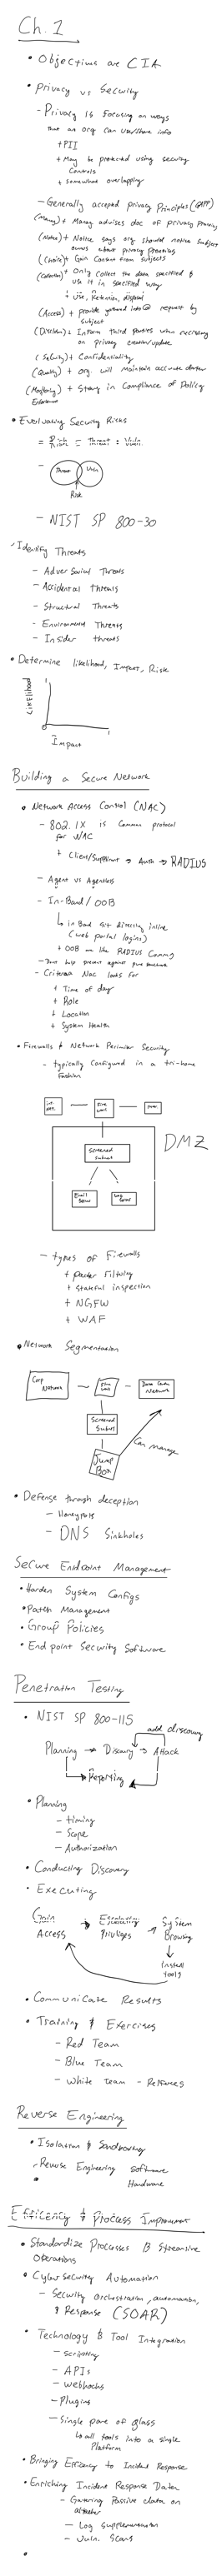 Ch. 1
• Objectives are CIA
• Privacy vs Security
- Privacy is focusing on ways
that an org can use/share info
+ PII
+ May be protected using security
Controls
+ Somewhat overlapping
- Generally accepted privacy Principles (GAPP)
+ Manag advises doc of privacy
(Notice) + Notice says org should notice subject
about privacy
(Choice) + Gain Consent from subjects
+ Only collect the data specified &
use it in specified way
+ Use, Retention, disposal
(Access) + provide by
subject
+ Inform third parties when necessary
on privacy
(Security) + Confidentiality
(Quality) + org will maintain accurate data
(Monitoring + Stay in Compliance of Policy
• Evaluating Security Risks
= Risk = Threat * Vuln.
- Threat Vuln
Risk
- NIST SP 800-30
Identify Threats
- Adversarial Threats
- Accidental threats
- Structural Threats
- Threats
- Insider threats
• Determine likelihood, Impact, Risk
Impact
Building a Secure Network
• Network Access Control (NAC)
- 802.1X is Common protocol
for NAC
+ Client/ → Auth → RADIUS
- Agent vs Agentless
- In-Band / OOB
in Band sit directly inline
(web portal logins)
+ OOB like RADIUS Comms
- help prevent against
- Criteria Nac looks for
+ Time of day
+ Role
+ Location
+ System Health
• Firewalls & Network Security
- typically Configured in a
Fashion
Fire
wall
DMZ
Screened
Subnet
Email
- types of Firewalls
+ Packet Filtering
+ Stateful inspection
+ NGFW
+ WAF
• Network Segmentation
Corp
Network
Data
Network
Screened
Subnet
Jump
Box
Can manage
• Defense through deception
- Honeypots
- DNS Sinkholes
Secure Endpoint Management
• Harden System Configs
• Patch Management
• Group Policies
• End point Security Software
Penetration Testing
• NIST SP 800-115
add discovery
Planning → Discovery → Attack
Reporting
• Planning
- timing
- Scope
- Authorization
• Conducting Discovery
• Executing
Gain
Access
Escalating
Privileges
System
Browsing
install
tools
• Communicate Results
• Training & Exercises
- Red Team
- Blue Team
- White team - Referees
Reverse Engineering
• Isolation & Sandboxing
- Reverse Engineering Software
Hardware
Efficiency & Process Improvement
• Standardize Processes &
Operations
• Cybersecurity Automation
- Security orchestration, automation,
& Response (SOAR)
• Technology & Tool Integration
- Scripting
- APIs
- webhooks
- Plugins
- Single pane of glass
all tools into a single
Platform
• Bringing Efficiency to Incident Response
• Enriching Incident Response Data
- Gathering Passive data on
- Log
- Vuln. Scans